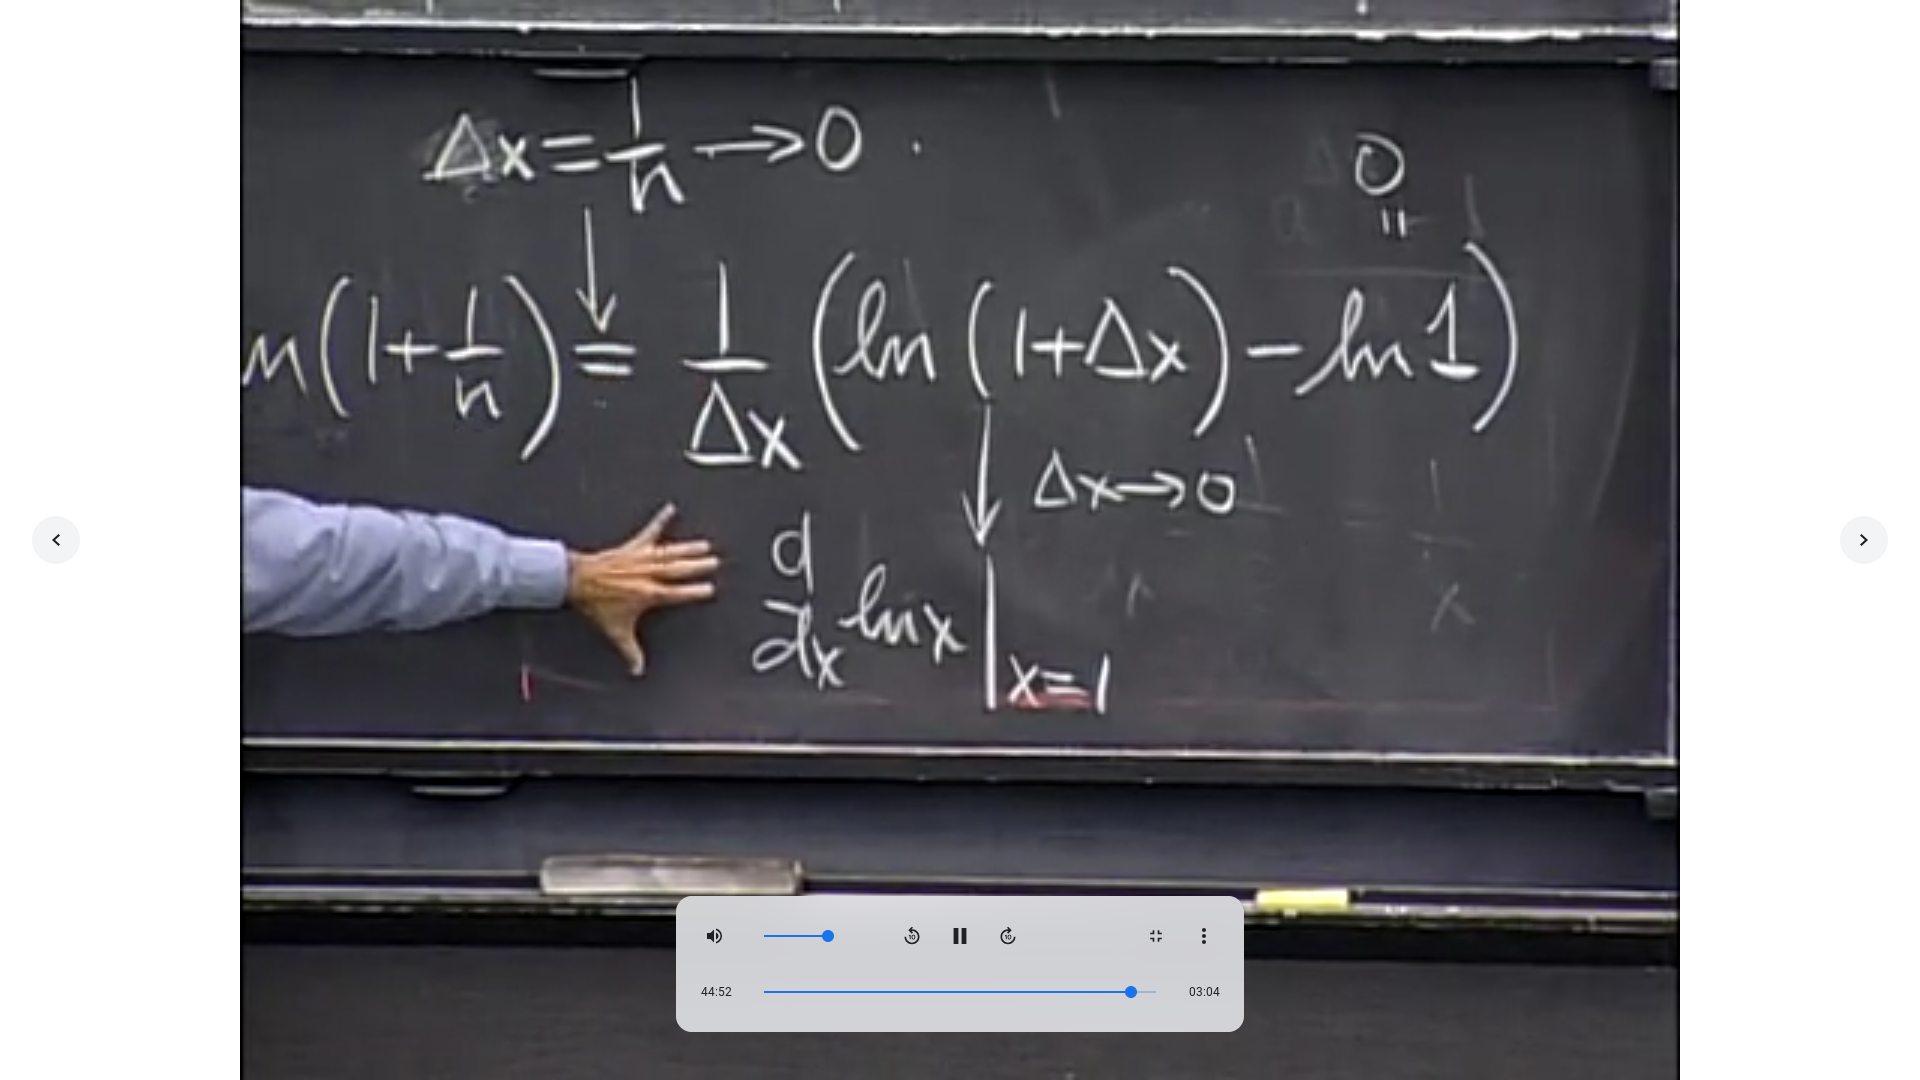 Δx = 1/n → 0 .
0
"
n(1 + 1/n) = 1/Δx (ln (1+Δx) - ln 1)
Δx → 0
d/dx ln x | x=1
10
10
44:52
03:04